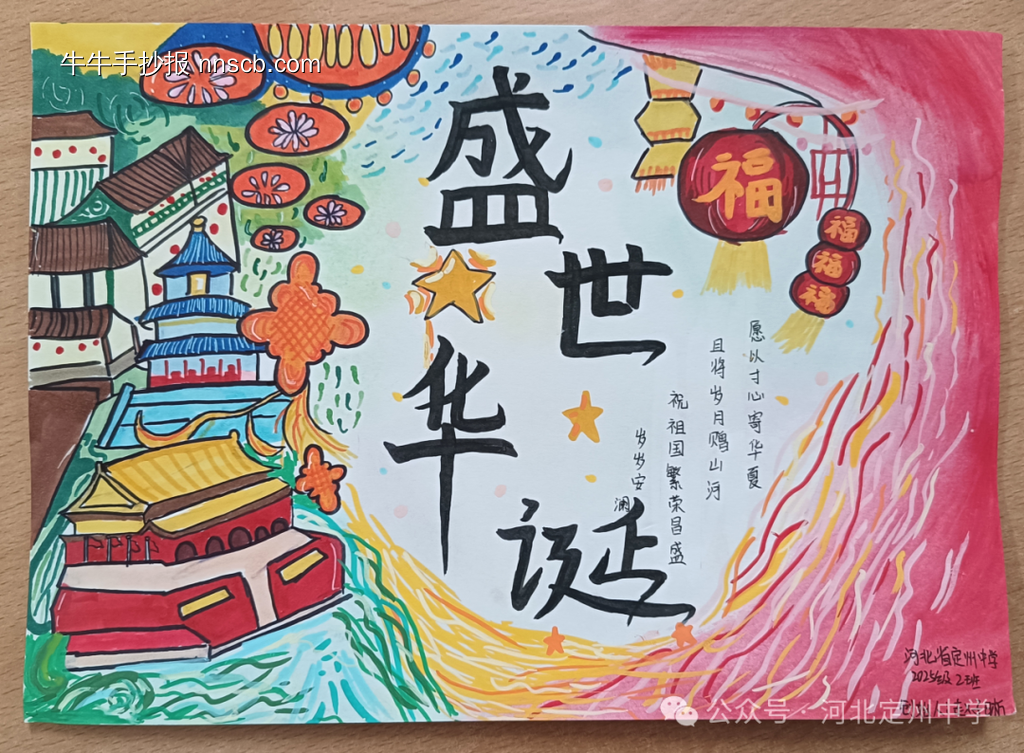 牛牛手抄报 nnscb.com
盛世华诞
福
福
福
福
愿以寸心寄华夏
且将岁月赠山河
祝祖国繁荣昌盛
岁岁安澜
河北省定州中学
2025级2班
公众号·河北定州中学